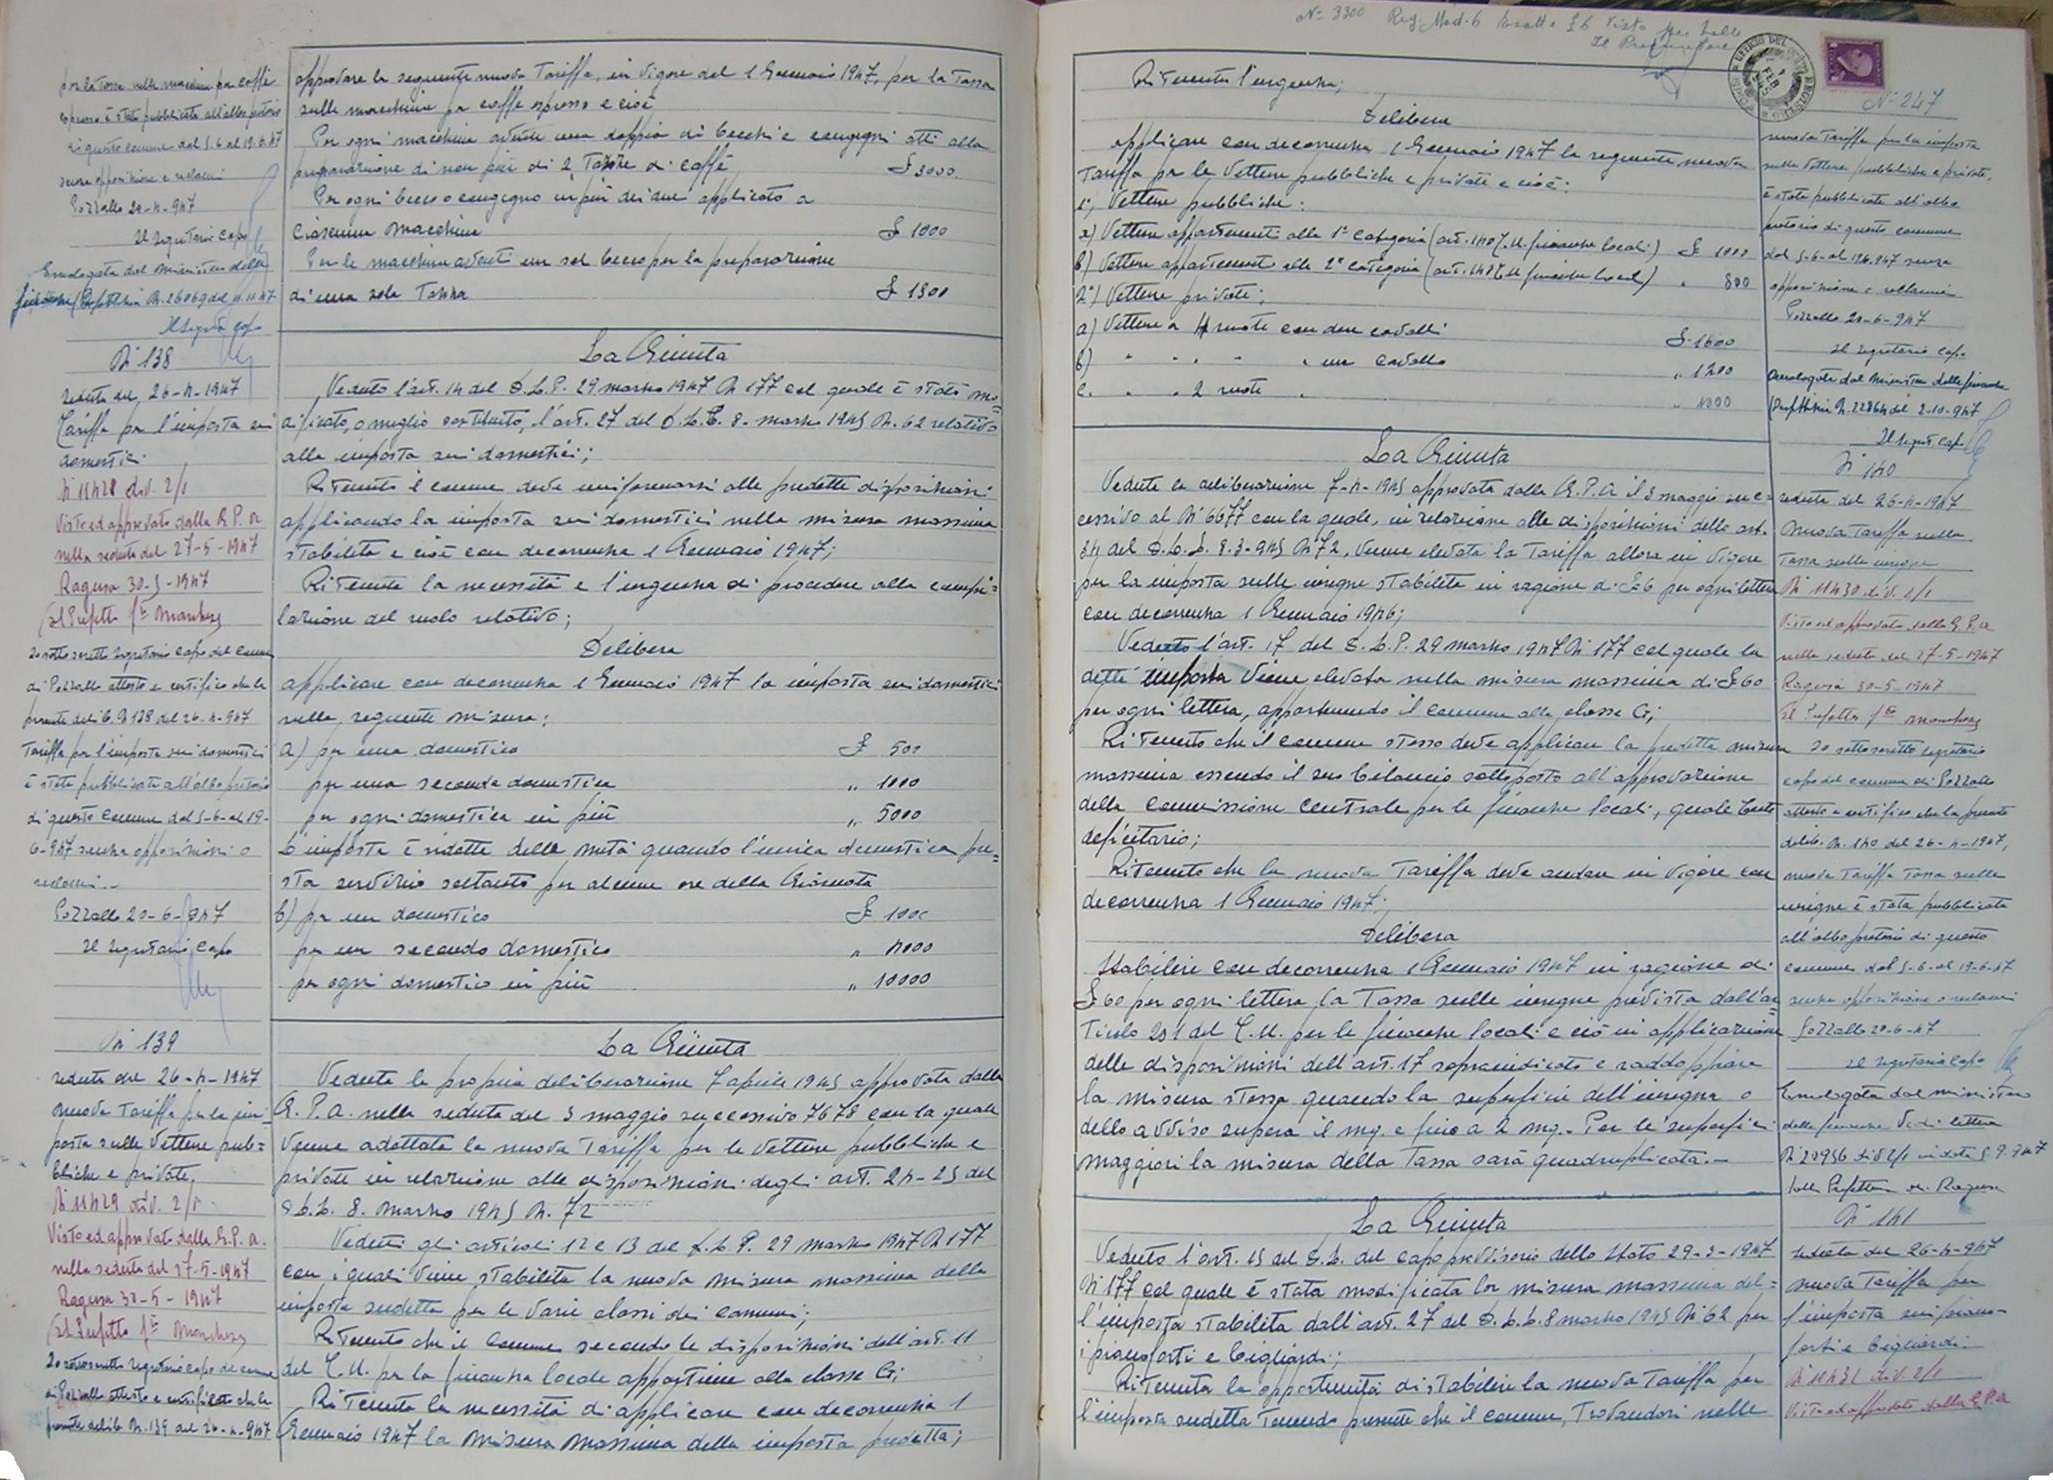 per la tassa sulle macchine per caffè
espresso è stata pubblicata all'albo pretorio
di questo comune dal 5-6 al 19-6-47
senza opposizione o reclami
Pozzallo 20-6-947
Il Segretario Capo
Omologata dal Ministero delle
finanze
Il Segret. Capo
approvare la seguente nuova Tariffa, in vigore dal 1 Gennaio 1947, per la Tassa
sulle macchine per caffè espresso e cioè
Per ogni macchina avente una doppia di becchi e congegni atti alla
preparazione di non più di 2 Tazze di caffè £ 3000.
Per ogni becco o congegno in più dei due applicato a
ciascuna macchina £ 1000
Per le macchine aventi un sol becco per la preparazione
di una sola Tazza £ 1300
N 138
seduta del 26-4-1947
Tariffa per l'imposta sui
domestici
N 11428 div. 2/1
Visto ed approvato dalla G.P.A
nella seduta del 27-5-1947
Ragusa 30-5-1947
Il Prefetto
Io sottoscritto Segretario Capo del Comune
di Pozzallo attesto e certifico che la
presente delib. N 138 del 26-4-947
Tariffa per l'imposta sui domestici
è stata pubblicata all'albo pretorio
di questo Comune dal 5-6-al 19-
6-947 senza opposizioni o
reclami.-
Pozzallo 20-6-947
Il Segretario Capo
La Giunta
Veduto l'art. 14 del D.L.P. 29 marzo 1947 N 177 col quale è stato mo=
dificato, o meglio sostituito, l'art. 27 del D.L.L. 8. marzo 1945 N. 62 relativo
alla imposta sui domestici;
Ritenuto il comune deve uniformarsi alle predette disposizioni
applicando la imposta sui domestici nella misura massima
stabilita e cioè con decorrenza 1 Gennaio 1947;
Ritenuta la necessità e l'urgenza di procedere alla compi=
lazione del ruolo relativo;
Delibera
applicare con decorrenza 1 Gennaio 1947 la imposta sui domestici
nella, seguente misura:
a) per una domestica £ 500
per una seconda domestica " 1000
per ogni domestica in più " 5000
L'imposta è ridotta della metà quando l'unica domestica pre=
sta servizio soltanto per alcune ore della Giornata
b) per un domestico £ 1000
per un secondo domestico " 4000
per ogni domestico in più " 10000
N 139
seduta del 26-4-1947
nuova Tariffa per la im=
posta sulle Vetture pub=
bliche e private.
N 11429 div. 2/1
Visto ed approvato dalla G.P.A.
nella seduta del 27-5-1947
Ragusa 30-5-1947
Il Prefetto
Io sottoscritto segretario capo del comune
di Pozzallo attesto e certifico che la
presente delib. N. 139 del 26-4-947
La Giunta
Veduta la propria deliberazione 7 aprile 1945 approvata dalla
G.P.A. nella seduta del 3 maggio successivo 7678 con la quale
venne adottata la nuova Tariffa per le vetture pubbliche e
private in relazione alle disposizioni degli art. 24-25 del
D.L.L. 8. marzo 1945 N. 72
Veduti gli articoli 12 e 13 del D.L.P. 29 marzo 1947 N 177
con i quali viene stabilita la nuova misura massima della
imposta sudetta per le varie classi dei comuni;
Ritenuto che il Comune secondo le disposizioni dell'art. 11
del T.U. per la finanza locale appartiene alla classe G;
Ritenuta la necessità di applicare con decorrenza 1
Gennaio 1947 la misura massima della imposta predetta;
N° 3300 Reg. Mod. 6 Esatte £ 6 Visto per bollo
Il Procuratore
N° 247
Ritenuta l'urgenza;
Delibera
applicare con decorrenza 1 Gennaio 1947 la seguente nuova
Tariffa per le vetture pubbliche e private e cioè:
1°) Vetture pubbliche:
a) Vetture appartenenti alla 1ª categoria (art. 140 T.U. finanze locali) £ 1000
b) Vetture appartenenti alla 2ª categoria (art. 140 T.U. finanze locali) " 800
2°) Vetture private;
a) Vetture a 4 ruote con due cavalli £ 1600
b) " " " " " un cavallo " 1200
c. " " 2 ruote " " 1000
nuova Tariffa per la imposta
sulle Vetture pubbliche e private.
è stata pubblicata all'albo
pretorio di questo comune
dal 5-6-al 19.6.947 senza
opposizione o reclami
Pozzallo 20-6-947
Il Segretario Capo
Omologata dal Ministero delle finanze
(Prefettizia N. 22864 del 2-10-947
Il Segret. Capo
La Giunta
Veduta la deliberazione 7-4-1945 approvata dalla G.P.A il 3 maggio suc=
cessivo al N 6677 con la quale, in relazione alle disposizioni dello art.
34 del D.L.L. 8-3-945 N 72, venne elevata la Tariffa allora in vigore
per la imposta sulle insegne stabilita in ragione di £ 6 per ogni lettera
con decorrenza 1 Gennaio 1946;
Veduto l'art. 17 del D.L.P. 29 marzo 1947 N 177 col quale la
detta imposta viene elevata nella misura massima di £ 60
per ogni lettera, appartenendo il comune alla classe G;
Ritenuto che il comune stesso deve applicare la predetta misura
massima essendo il suo bilancio sottoposto all'approvazione
della commissione centrale per le finanze locali, quale Ente
deficitario;
Ritenuto che la nuova Tariffa deve andare in vigore con
decorrenza 1 Gennaio 1947;
Delibera
Stabilire con decorrenza 1 Gennaio 1947 in ragione di
£ 60 per ogni lettera la Tassa sulle insegne prevista dall'ar=
ticolo 201 del T.U. per le finanze locali e ciò in applicazione
delle disposizioni dell'art. 17 sopraindicato e raddoppiare
la misura stessa quando la superficie dell'insegna o
dello avviso supera il mq. e fino a 2 mq.- Per le superfici
maggiori la misura della Tassa sarà quadruplicata.-
N 140
seduta del 26-4-1947
nuova Tariffa sulla
Tassa sulle insegne
N 11430 div. 2/1
Visto ed approvato dalla G.P.A
nella seduta del 27-5-1947
Ragusa 30-5-1947
Il Prefetto
Io sottoscritto segretario
capo del comune di Pozzallo
attesto e certifico che la presente
delib. N. 140 del 26-4-1947,
nuova Tariffa Tassa sulle
insegne è stata pubblicata
all'albo pretorio di questo
comune dal 5-6-al 19-6-47
senza opposizione o reclami
Pozzallo 20-6-47
Il Segretario Capo
Omologata dal Ministero
delle finanze Vedi lettera
N 20956 div 2/1 in data 5.9.947
della Prefettura di Ragusa
La Giunta
Veduto l'art. 15 del D.L. del capo provvisorio dello Stato 29-3-1947
N 177 col quale è stata modificata la misura massima del=
l'imposta stabilita dall'art. 27 del D.L.L. 8 marzo 1945 N 62 per
i pianoforti e bigliardi;
Ritenuta la opportunità di stabilire la nuova Tariffa per
l'imposta sudetta Tenendo presente che il comune, Trovandosi nelle
N 141
seduta del 26-4-947
nuova Tariffa per
l'imposta sui piano-
forti e bigliardi.
N 11431 div. 2/1
Visto ed approvato dalla G.P.A